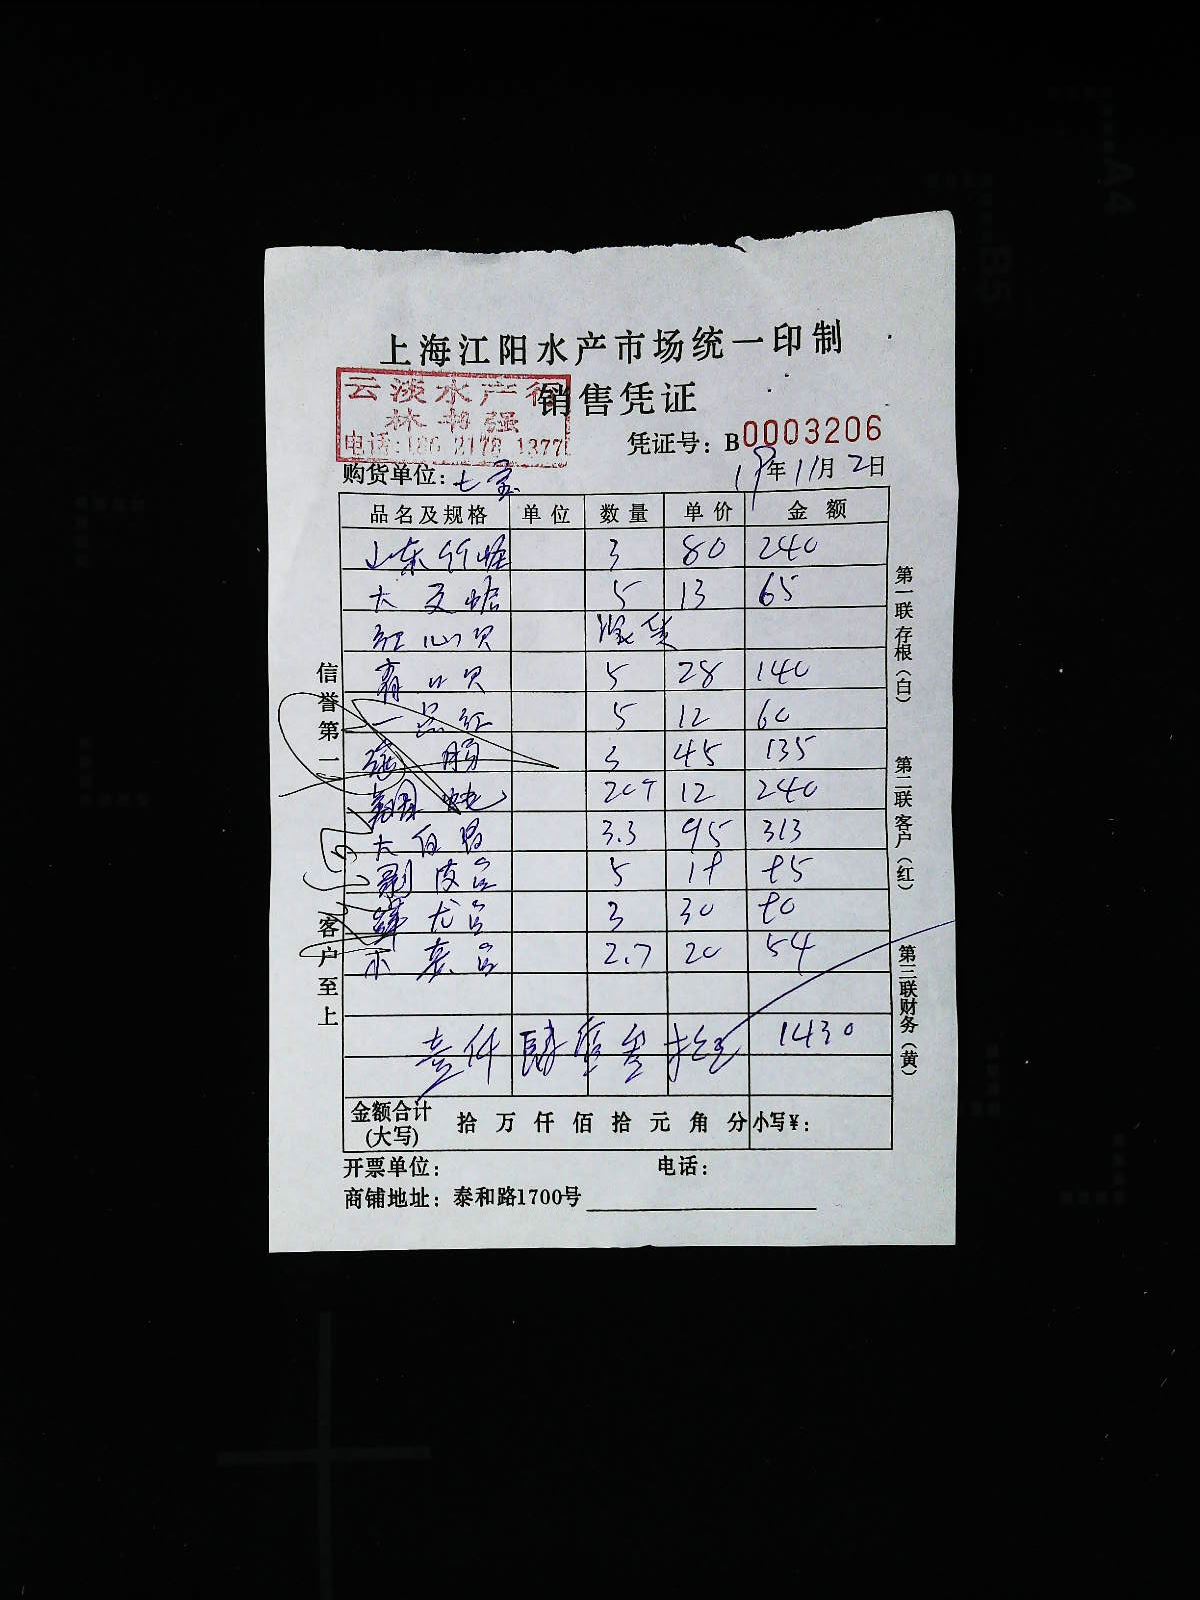 上海江阳水产市场统一印制
云淡水产行
销售凭证
林书强
电话:186 2178 1377
凭证号：B0003206
购货单位：七宝
19年11月2日
品名及规格 单位 数量 单价 金额
山东竹蛏 3 80 240
大文蛤 5 13 65
红心贝
青口贝 5 28 140
一品红 5 12 60
3 45 135
12 240
大白 3.3 95 313
5 85
3 30 90
2.7 20 54
壹仟肆壹叁拾 1430
金额合计(大写) 拾万仟佰拾元角分 小写¥：
开票单位： 电话：
商铺地址：泰和路1700号
信誉第一 客户至上
第一联存根（白）
第二联客户（红）
第三联财务（黄）